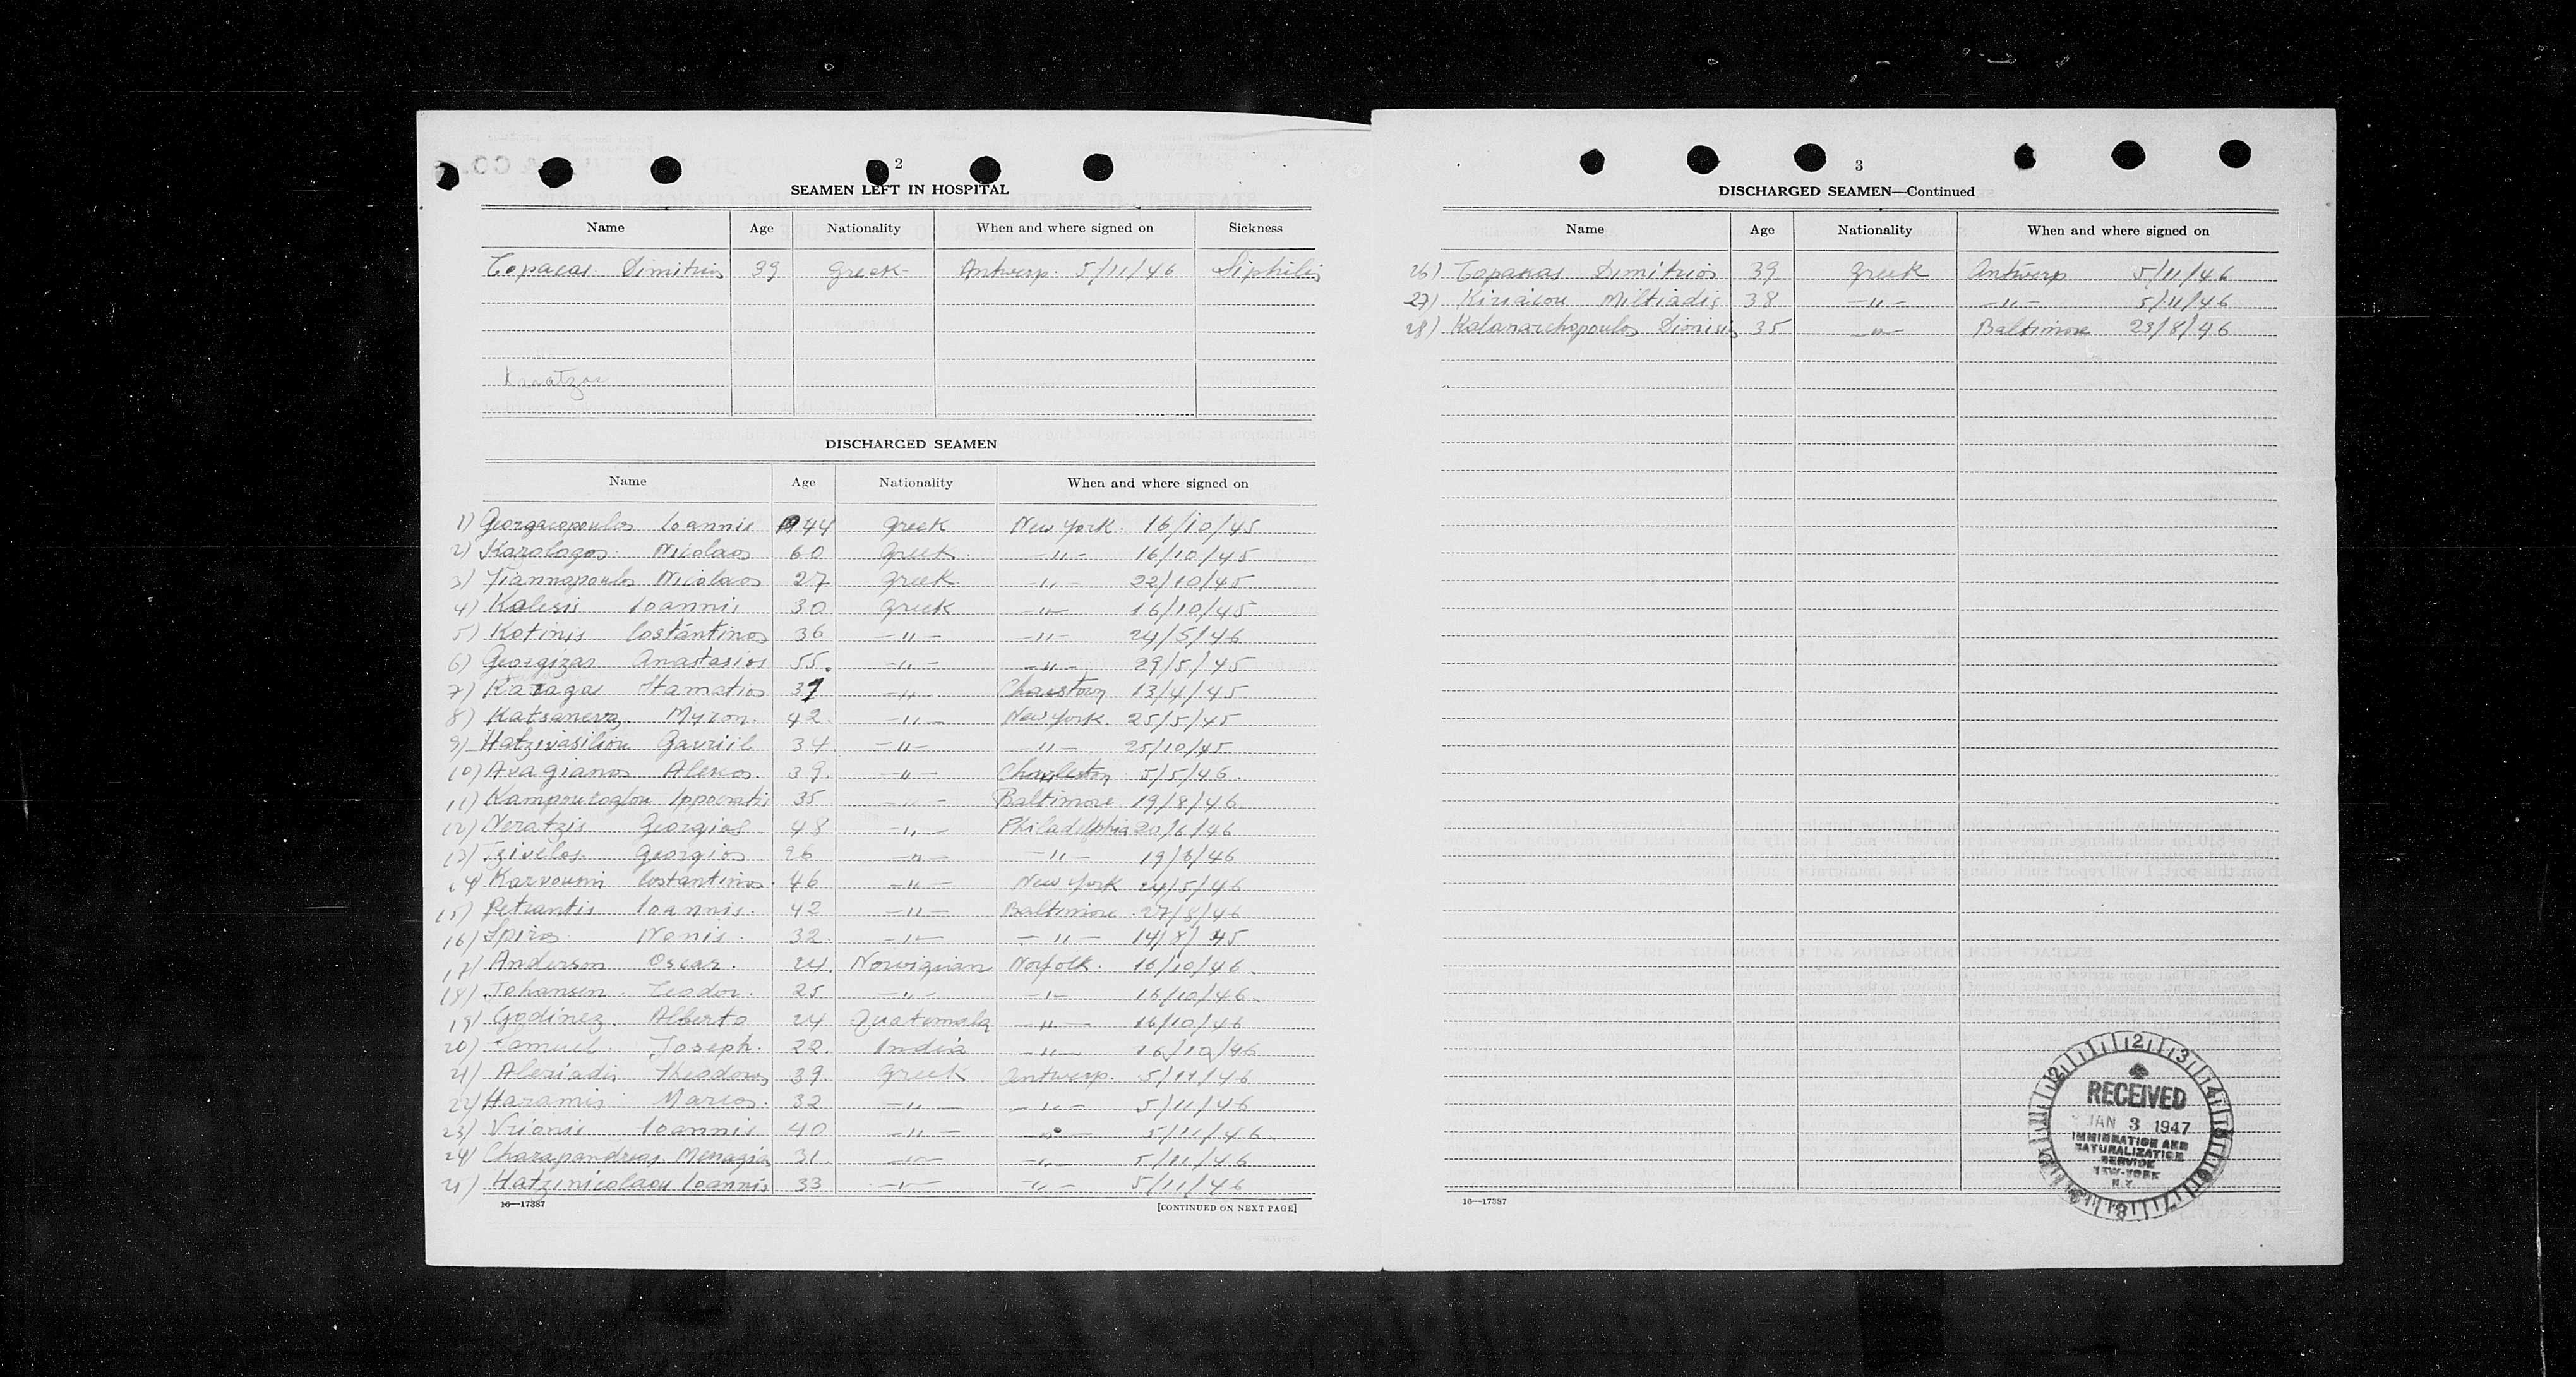 2
SEAMEN LEFT IN HOSPITAL
Name Age Nationality When and where signed on Sickness
Topacas Dimitrios 39 Greek Antwerp. 5/11/46 Siphilis
DISCHARGED SEAMEN
Name Age Nationality When and where signed on
1) Georgacopoulos Ioannis 44 Greek New York. 16/10/45
2) Karalagos Nicolaos 60 Greek. —"— 16/10/45
3) Yiannopoulos Nicolaos 27 Greek —"— 22/10/45
4) Kalesis Ioannis 30 Greek —"— 16/10/45
5) Kotinis Costantinos 36 —"— —"— 24/5/46
6) Georgizas Anastasios 55. —"— —"— 29/5/45
7) Karagas Stamatios 37 —"— 13/4/45
8) Katsaneva Myron. 42 —"— New York. 25/5/45
9) Hatzivasiliou Gavriil 34 —"— —"— 25/10/45
10) Avagianos Alexos. 39. —"— Charleston 5/5/46.
11) Kampoutoglou Ippocratis 35 —"— Baltimore 19/8/46
12) Neratzis Georgios 48 —"— Philadelphia 20/6/46
13) Tzivelos. Georgios 26 —"— —"— 19/6/46
14) Karvouni Costantinos. 46 —"— New York 24/5/46
15) Petrantis Ioannis. 42 —"— Baltimore 27/8/46
16) Spiros Nonis. 32. —"— —"— 14/8/45
17) Anderson Oscar. 24. Norvigian Norfolk. 16/10/46
18) Johansen. Teodor. 25 —"— —"— 16/10/46
19) Godinez. Alberto 24 Guatemala —"— 16/10/46
20) Samuel. Joseph. 22. India —"— 16/10/46
21) Alexiadis Theodoros 39. Greek Antwerp. 5/11/46
22) Haramis Marcos. 32 —"— —"— 5/11/46
23) Vrionis Ioannis 40 —"— —"— 5/11/46
24) Charapandreas Menagia 31. —"— —"— 5/11/46
25) Hatzinicolaou Ioannis 33 —"— —"— 5/11/46
16—17387 [CONTINUED ON NEXT PAGE]
3
DISCHARGED SEAMEN—Continued
Name Age Nationality When and where signed on
26) Topakas Dimitrios 39 Greek Antwerp 5/11/46
27) Kiriacou Miltiadis 38 —"— —"— 5/11/46
28) Kalanarchopoulos Dionisis 35 —"— Baltimore 23/8/46
RECEIVED
JAN 3 1947
IMMIGRATION AND
NATURALIZATION
SERVICE
NEW-YORK
N.Y.
16—17387